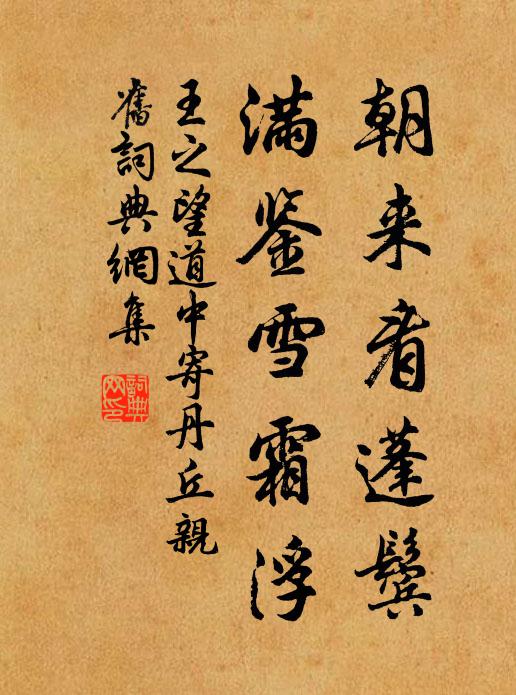 朝来看蓬鬓
满鉴雪霜浮
王之望道中寄丹丘親
舊詞典網集
詞典网印